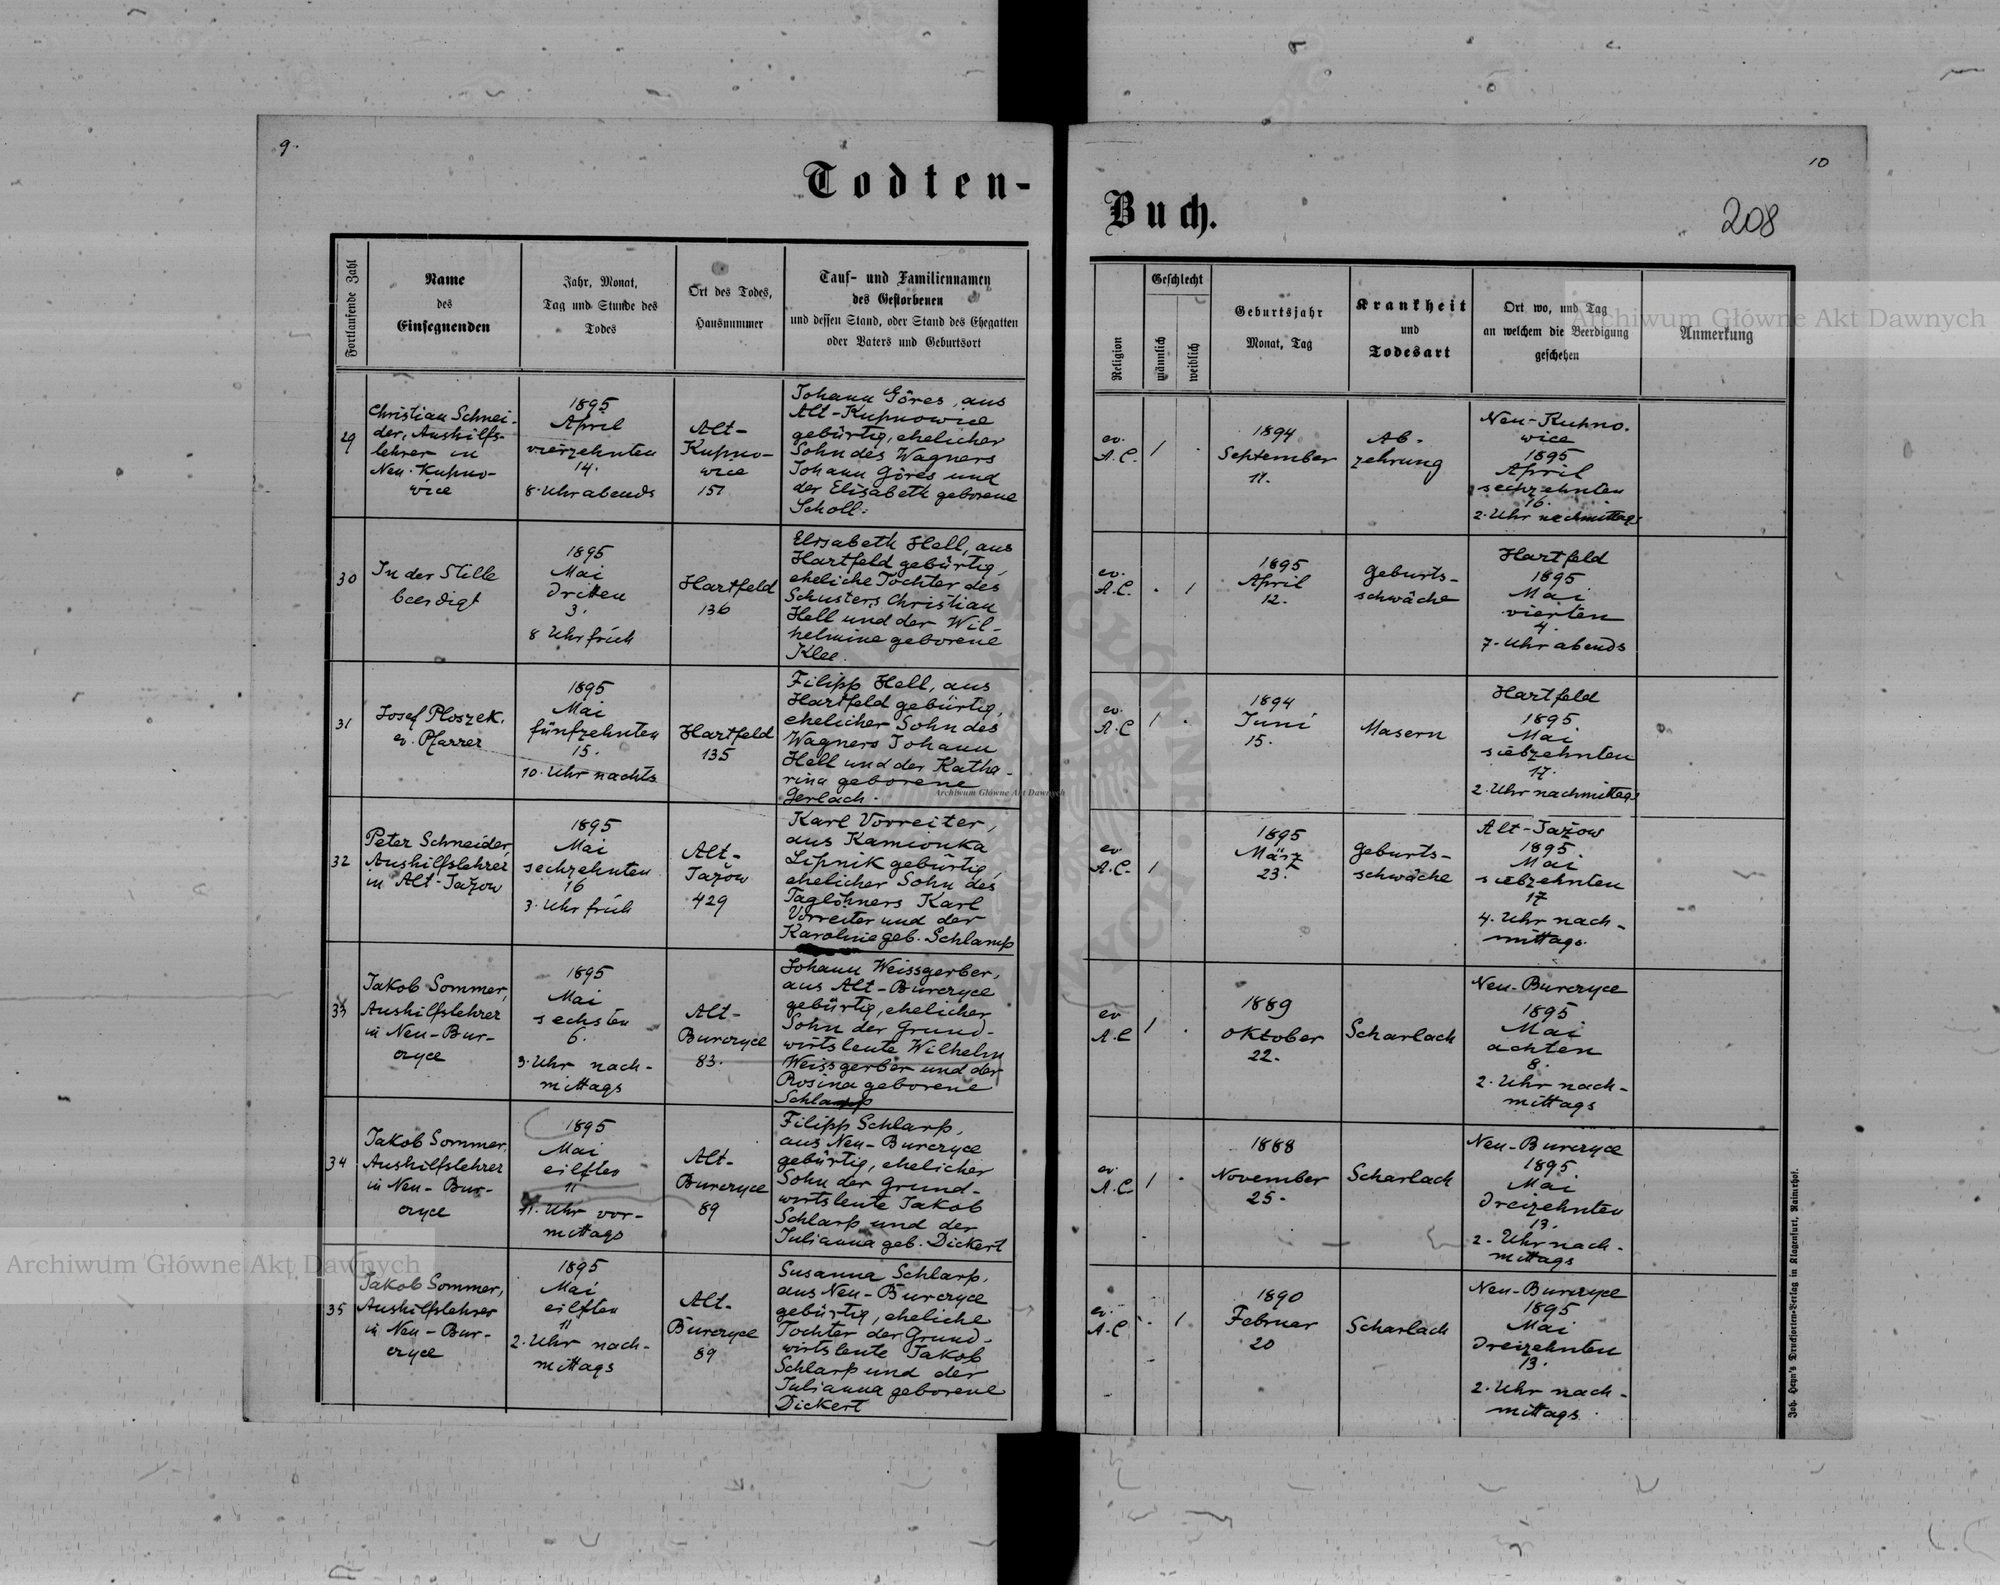 9.
10
Todten-
Buch.
208
Fortlaufende Zahl
Name
des
Einsegnenden
Jahr, Monat,
Tag und Stunde des
Todes
Ort des Todes,
Hausnummer
Tauf- und Familiennamen
des Gestorbenen
und dessen Stand, oder Stand des Ehegatten
oder Vaters und Geburtsort
Religion
Geschlecht
männlich
weiblich
Geburtsjahr
Monat, Tag
Krankheit
und
Todesart
Ort wo, und Tag
an welchem die Beerdigung
geschehen
Anmerkung
29
Christian Schnei-
der, Aushilfs-
lehrer in
Neu-Kupno-
wice
1895
April
vierzehnten
14.
8. Uhr abends
Alt-
Kupno-
wice
151
Johann Göres, aus
Alt-Kupnowice
gebürtig, ehelicher
Sohn des Wagners
Johann Göres und
der Elisabeth geborene
Scholl.
ev.
A.C.
1
.
1894
September
11.
Ab-
zehrung
Neu-Kupno-
wice
1895
April
sechzehnten
16.
2. Uhr nachmittags
30
In der Stille
beerdigt
1895
Mai
dritten
3.
8 Uhr früh
Hartfeld
136
Elisabeth Hell, aus
Hartfeld gebürtig,
eheliche Tochter des
Schusters Christian
Hell und der Wil-
helmine geborene
Klee.
ev.
A.C.
.
1
1895
April
12.
Geburts-
schwäche
Hartfeld
1895
Mai
vierten
4.
7. Uhr abends
31
Josef Ploszek.
ev. Pfarrer
1895
Mai
fünfzehnten
15.
10. Uhr nachts
Hartfeld
135
Filipp Hell, aus
Hartfeld gebürtig,
ehelicher Sohn des
Wagners Johann
Hell und der Katha-
rina geborene
Gerlach.
ev.
A.C
1
.
1894
Juni
15.
Masern
Hartfeld
1895
Mai
siebzehnten
17.
2. Uhr nachmittags
32
Peter Schneider,
Aushilfslehrer
in Alt-Jažow
1895
Mai
sechzehnten
16
3. Uhr früh
Alt-
Jažow
429
Karl Vorreiter,
aus Kamionka
Lipnik gebürtig,
ehelicher Sohn des
Taglöhners Karl
Vorreiter und der
Karoline geb. Schlamp
ev
A.C.
1
1895
März
23.
Geburts-
schwäche
Alt-Jažow
1895
Mai
siebzehnten
17
4. Uhr nach-
mittags.
33
Jakob Sommer,
Aushilfslehrer
in Neu-Bur-
czyce
1895
Mai
sechsten
6.
3. Uhr nach-
mittags
Alt-
Burczyce
83.
Johann Weissgerber,
aus Alt-Burczyce
gebürtig, ehelicher
Sohn der Grund-
wirtsleute Wilhelm
Weissgerber und der
Rosina geborene
ev
A.C
1
.
1889
Oktober
22.
Scharlach
Neu-Burczyce
1895
Mai
achten
8.
2. Uhr nach-
mittags
34
Jakob Sommer,
Aushilfslehrer
in Neu-Bur-
czyce
1895
Mai
eilften
11
11. Uhr vor-
mittags
Alt-
Burczyce
89
Filipp Schlarp,
aus Neu-Burczyce
gebürtig, ehelicher
Sohn der Grund-
wirtsleute Jakob
Schlarp und der
Julianna geb. Dickert
ev.
A.C.
1
.
1888
November
25.
Scharlach
Neu-Burczyce
1895
Mai
dreizehnten
13.
2. Uhr nach-
mittags
35
Jakob Sommer,
Aushilfslehrer
in Neu-Bur-
czyce
1895
Mai
eilften
11
2. Uhr nach-
mittags
Alt-
Burczyce
89
Susanna Schlarp,
aus Neu-Burczyce
gebürtig, eheliche
Tochter der Grund-
wirtsleute Jakob
Schlarp und der
Julianna geborene
Dickert
ev.
A.C
.
1
1890
Februar
20
Scharlach
Neu-Burczyce
1895
Mai
dreizehnten
13.
2. Uhr nach-
mittags.
Joh. Heyn's Drucksorten-Verlag in Klagenfurt,
Archiwum Główne Akt Dawnych
Archiwum Główne Akt Dawnych
Archiwum Główne Akt Dawnych